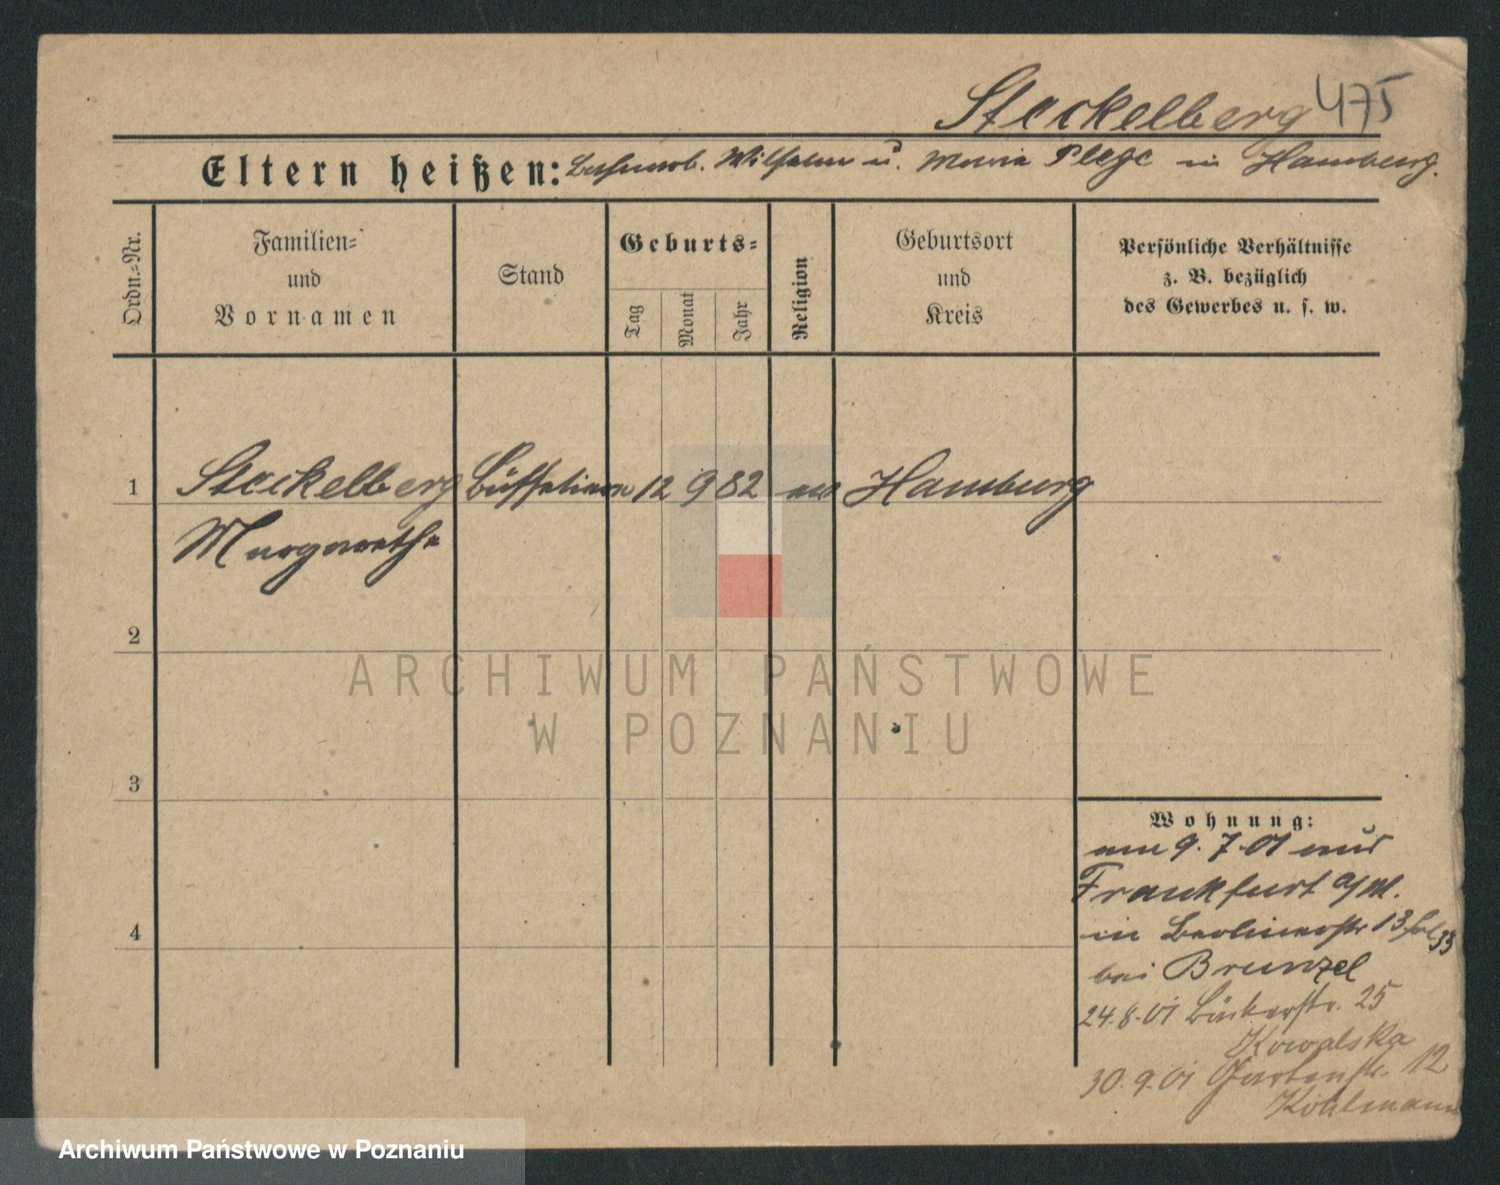 Steckelberg 475
Eltern heißen: Wilhelm u. Maria Plege in Hamburg.
Ordn.=Nr.
Familien=
und
Vornamen
Stand
Geburts=
Tag
Monat
Jahr
Religion
Geburtsort
und
Kreis
Persönliche Verhältnisse
z. B. bezüglich
des Gewerbes u. s. w.
1 Steckelberg 12 9 82 Hamburg
Margarethe
2
ARCHIWUM PAŃSTWOWE
W POZNANIU
3
Wohnung:
am 9.7.01 aus
Frankfurt a/M.
in Berlinerstr 13
bei Brunzel
24.8.01 Bäckerstr. 25
Kowalska
30.9.01 Gartenstr. 12
Kohlmann
4
Archiwum Państwowe w Poznaniu